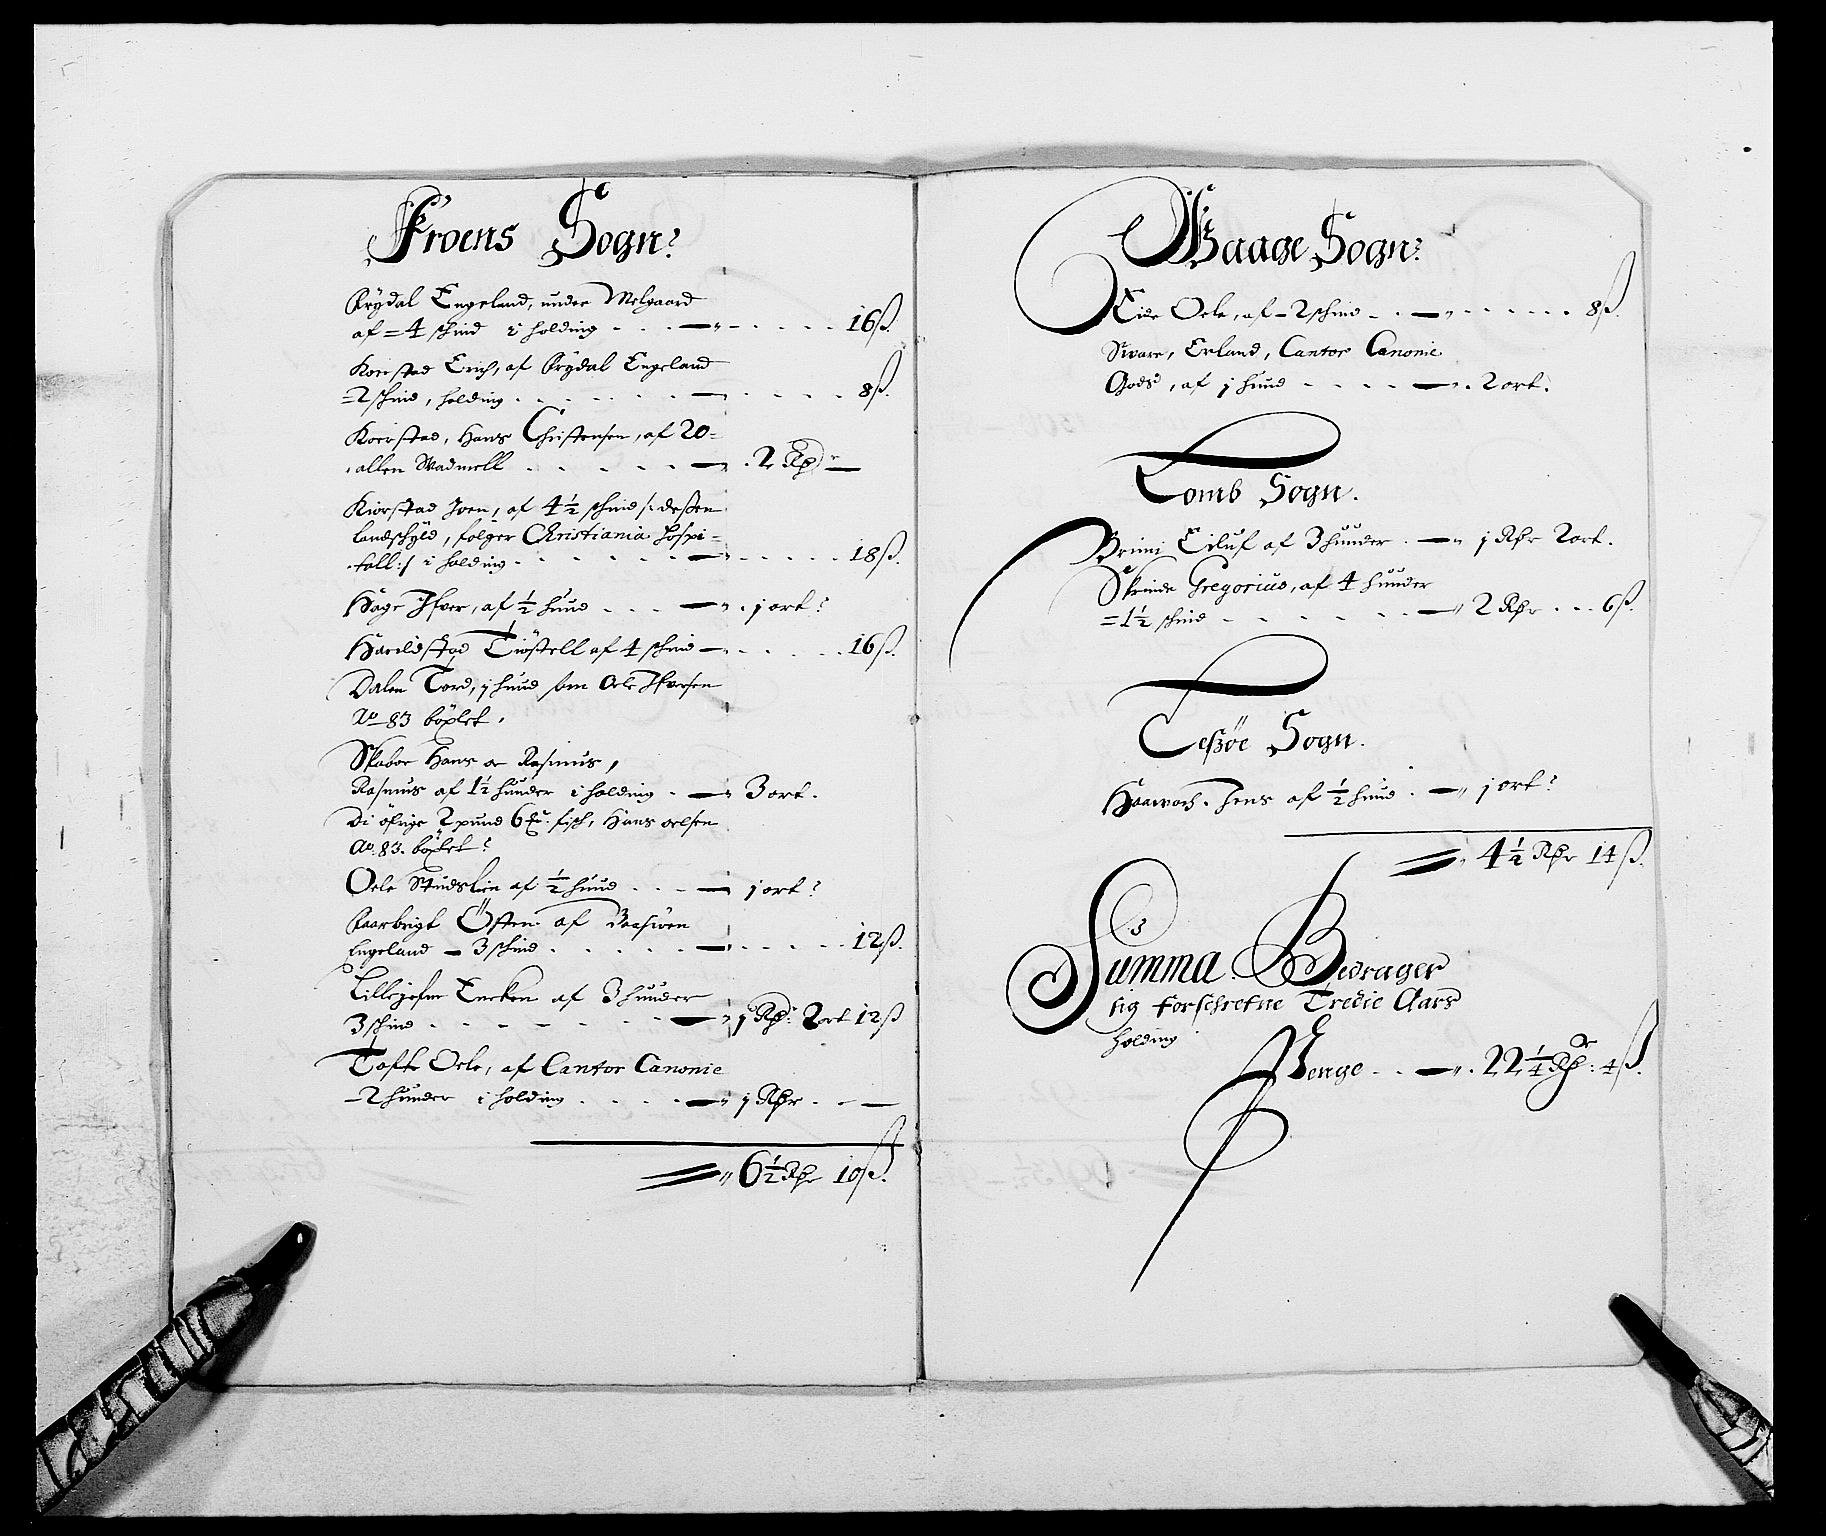 Froens Sogn:
Rÿdal Engeland, under Melgaard
af = 4 schind i holding - - - — „ - - - - - 16 ß.
Koerstad Erich, af Rÿdal Engeland
= 2 schind, holding - - - - - - — - - - - - 8 ß.
Koerstad, Hans Christensen, af 20 =
allen Wadmell - - - - - — „ 2 Rdr —
Kiorstad Joen, af 4 ½ schind /: deßen
landschÿld, følger Christiania Hospi =
tall :/ i holding - - - - - — „ - - - - 18 ß.
Hage Ifver, af ½ huud - - - — „ 1 ort:
Harildstad Tiøstell af 4 schind — „ - - - - 16 ß.
Dalen Tord, 1 huud som Oele Ifversen
Ao 83 böxlet.
Skabor Hans oc Rasmus,
Rasmus af 1½ huuder i holding - — „ 3 ort.
Di öfrige 2 pund 6 fisch, Hans oelsen
Ao 83. böxlet:
Oele Studslien af ½ huud - - - — 1 ort:
Östen af
Engeland — 3 schind - - - - - — „ - - - - 12 ß.
Lillejofm af 3 huuder
3 schind - - - - - - - — „ 1 Rdr: 2 ort 12 ß
Tofte Oele, af Cantor Canonie
- 2 huuder i holding - - - - — „ 1 Rdr - - —
„ 6½ Rdr 10 ß.
Waage Sogn:
Eide Oele, af = 2 schind - - — „ - - - - - 8 ß.
Svare, Erland, Cantor Canonie
Gods, af 1 huud - - - - — „ 2 ort.
Lomb Sogn.
Brimi Eiluf af 3 huuder - — „ 1 Rdr 2 ort.
Skrinde Gregorius, af 4 huuder
= 1½ schind - - - - - - - — „ 2 Rdr - - - 6 ß.
Leßøe Sogn.
Jens af ½ huud - — „ 1 ort:
„ 4½ Rdr 14 ß.
Summa Bedrager
sig forschrefne Tredie Aars
holding
Penge - - — „ 22¼ Rdr: 4 ß.